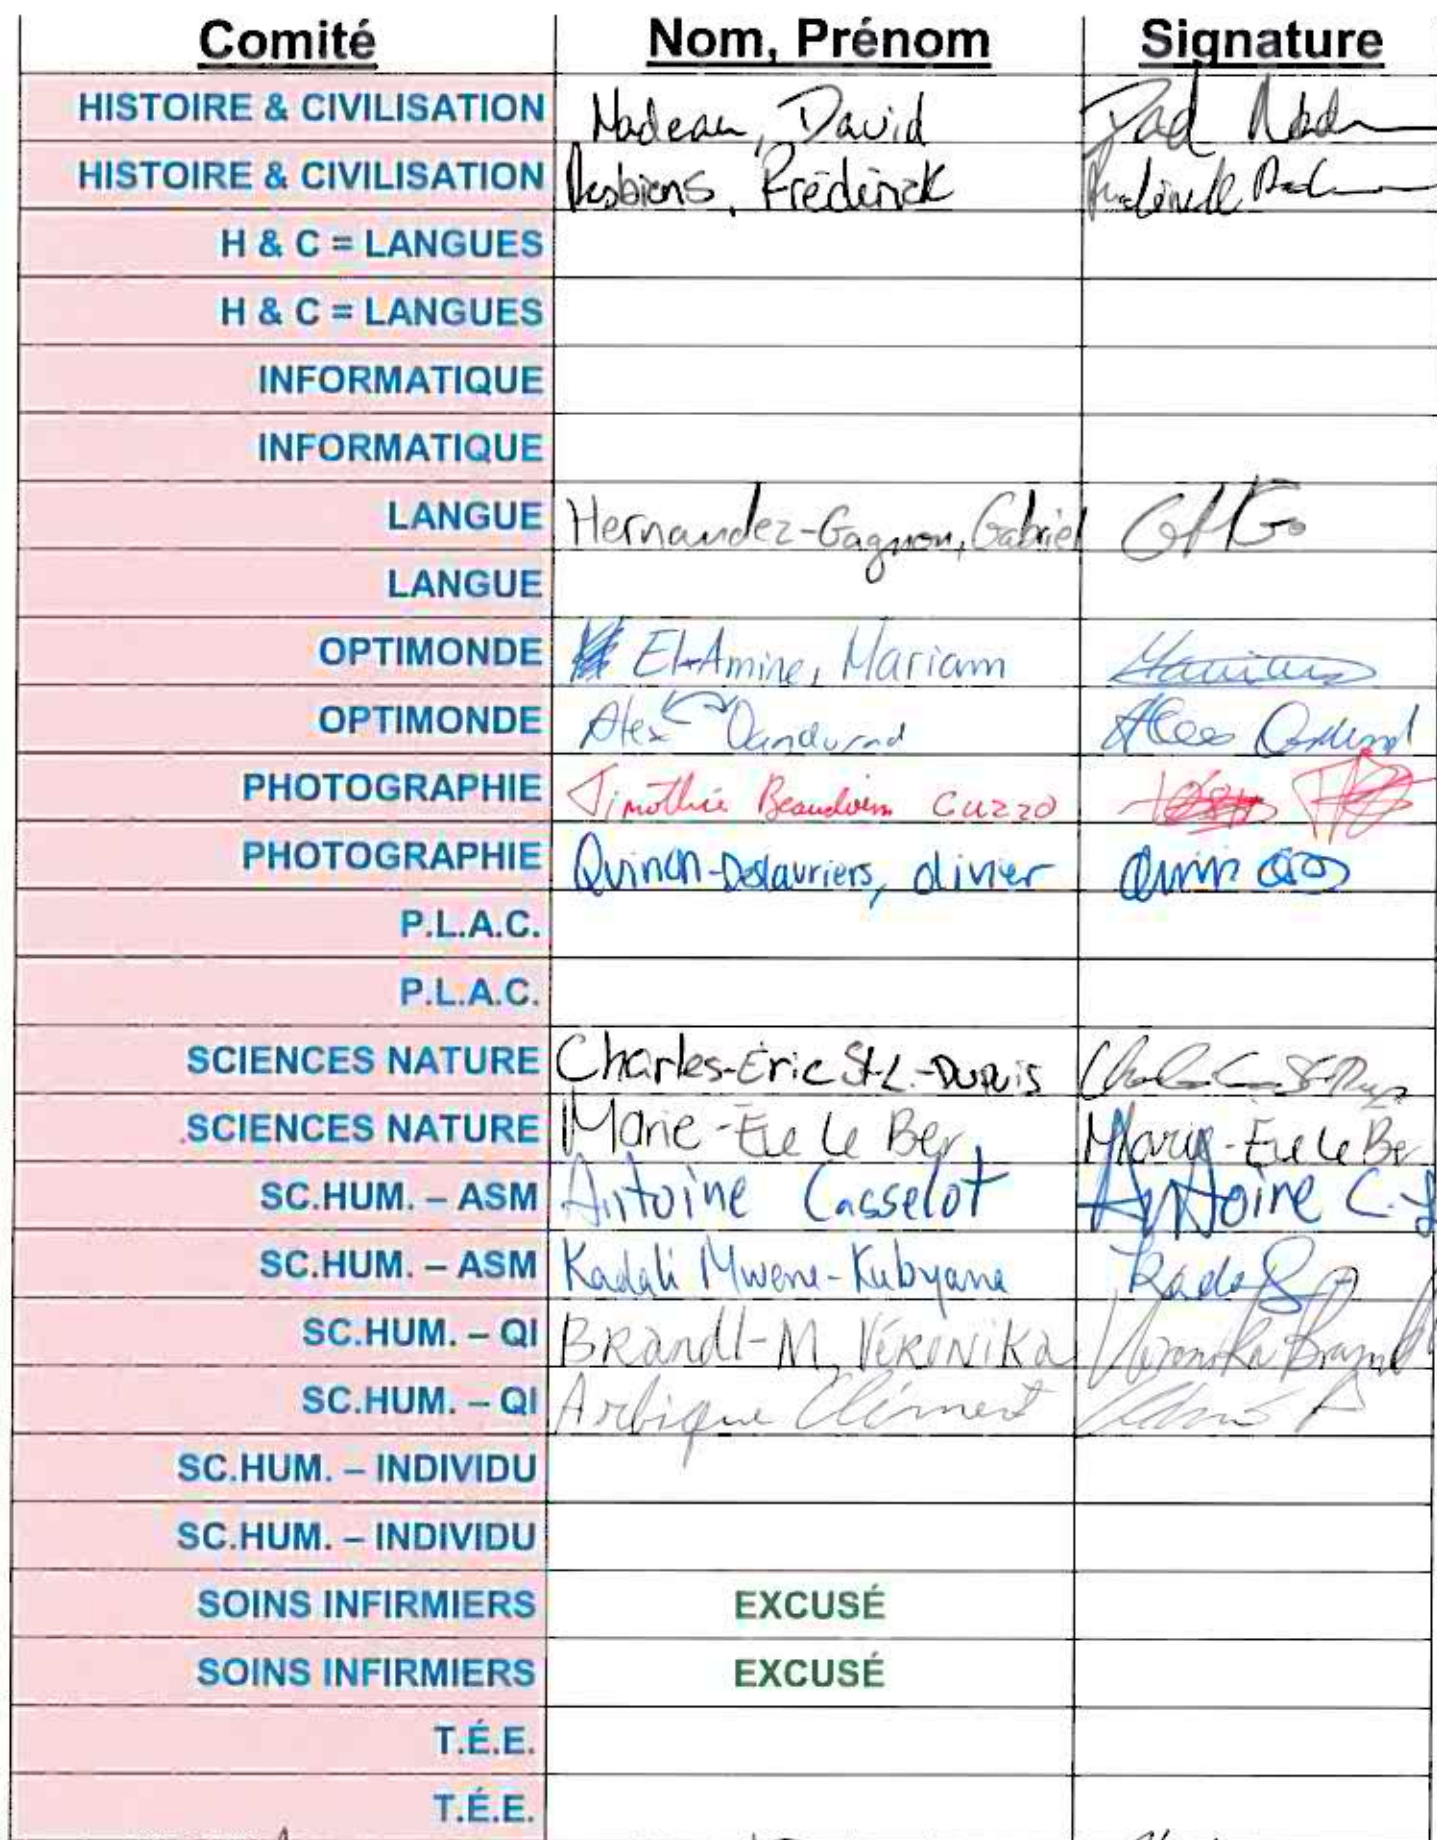 Comité Nom, Prénom Signature
HISTOIRE & CIVILISATION Nadeau, David
HISTOIRE & CIVILISATION Desbiens, Fréderick
H & C = LANGUES
H & C = LANGUES
INFORMATIQUE
INFORMATIQUE
LANGUE Hernandez-Gagnon, Gabriel GHG
LANGUE
OPTIMONDE El-Amine, Mariam Mariam
OPTIMONDE Alex Dandurand
PHOTOGRAPHIE Timothée Beaudoin Cuzzo
PHOTOGRAPHIE Quirion-Deslauriers, Olivier
P.L.A.C.
P.L.A.C.
SCIENCES NATURE Charles-Éric St-L.-Dupuis
SCIENCES NATURE Marie-Ève Le Ber Marie-Ève Le Ber
SC.HUM. – ASM Antoine Casselot Antoine C.
SC.HUM. – ASM Kadali Mwene-Kubyana
SC.HUM. – QI BRandl-M, VÉRONiKa Veronika Brandl
SC.HUM. – QI Arbique Clément
SC.HUM. – INDIVIDU
SC.HUM. – INDIVIDU
SOINS INFIRMIERS EXCUSÉ
SOINS INFIRMIERS EXCUSÉ
T.É.E.
T.É.E.